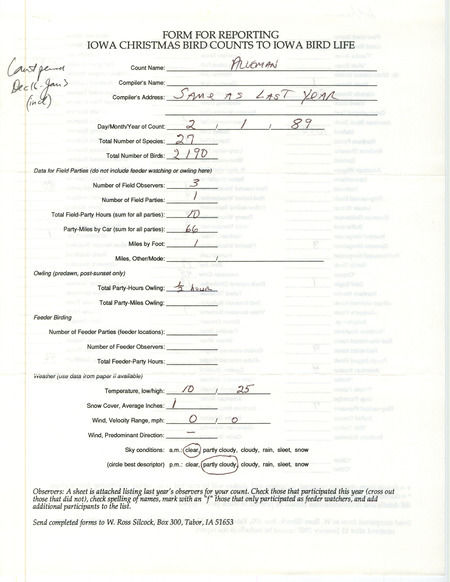 FORM FOR REPORTING
IOWA CHRISTMAS BIRD COUNTS TO IOWA BIRD LIFE
Count period
Dec 16-Jan 3
(incl)
Count Name: ALLEMAN
Compiler's Name:
Compiler's Address: SAME AS LAST YEAR
Day/Month/Year of Count: 2 , 1 , 89
Total Number of Species: 27
Total Number of Birds: 2190
Data for Field Parties (do not include feeder watching or owling here)
Number of Field Observers: 3
Number of Field Parties: 1
Total Field-Party Hours (sum for all parties): 10
Party-Miles by Car (sum for all parties): 66
Miles by Foot: 1
Miles, Other/Mode: ,
Owling (predawn, post-sunset only)
Total Party-Hours Owling: ½ hour
Total Party-Miles Owling:
Feeder Birding
Number of Feeder Parties (feeder locations):
Number of Feeder Observers:
Total Feeder-Party Hours:
Weather (use data from paper if available)
Temperature, low/high: 10 , 25
Snow Cover, Average Inches: 1
Wind, Velocity Range, mph: 0 , 0
Wind, Predominant Direction: —
Sky conditions: a.m.: clear, partly cloudy, cloudy, rain, sleet, snow
(circle best descriptor) p.m.: clear, partly cloudy, cloudy, rain, sleet, snow
Observers: A sheet is attached listing last year's observers for your count. Check those that participated this year (cross out
those that did not), check spelling of names, mark with an "f" those that only participated as feeder watchers, and add
additional participants to the list.
Send completed forms to W. Ross Silcock, Box 300, Tabor, IA 51653